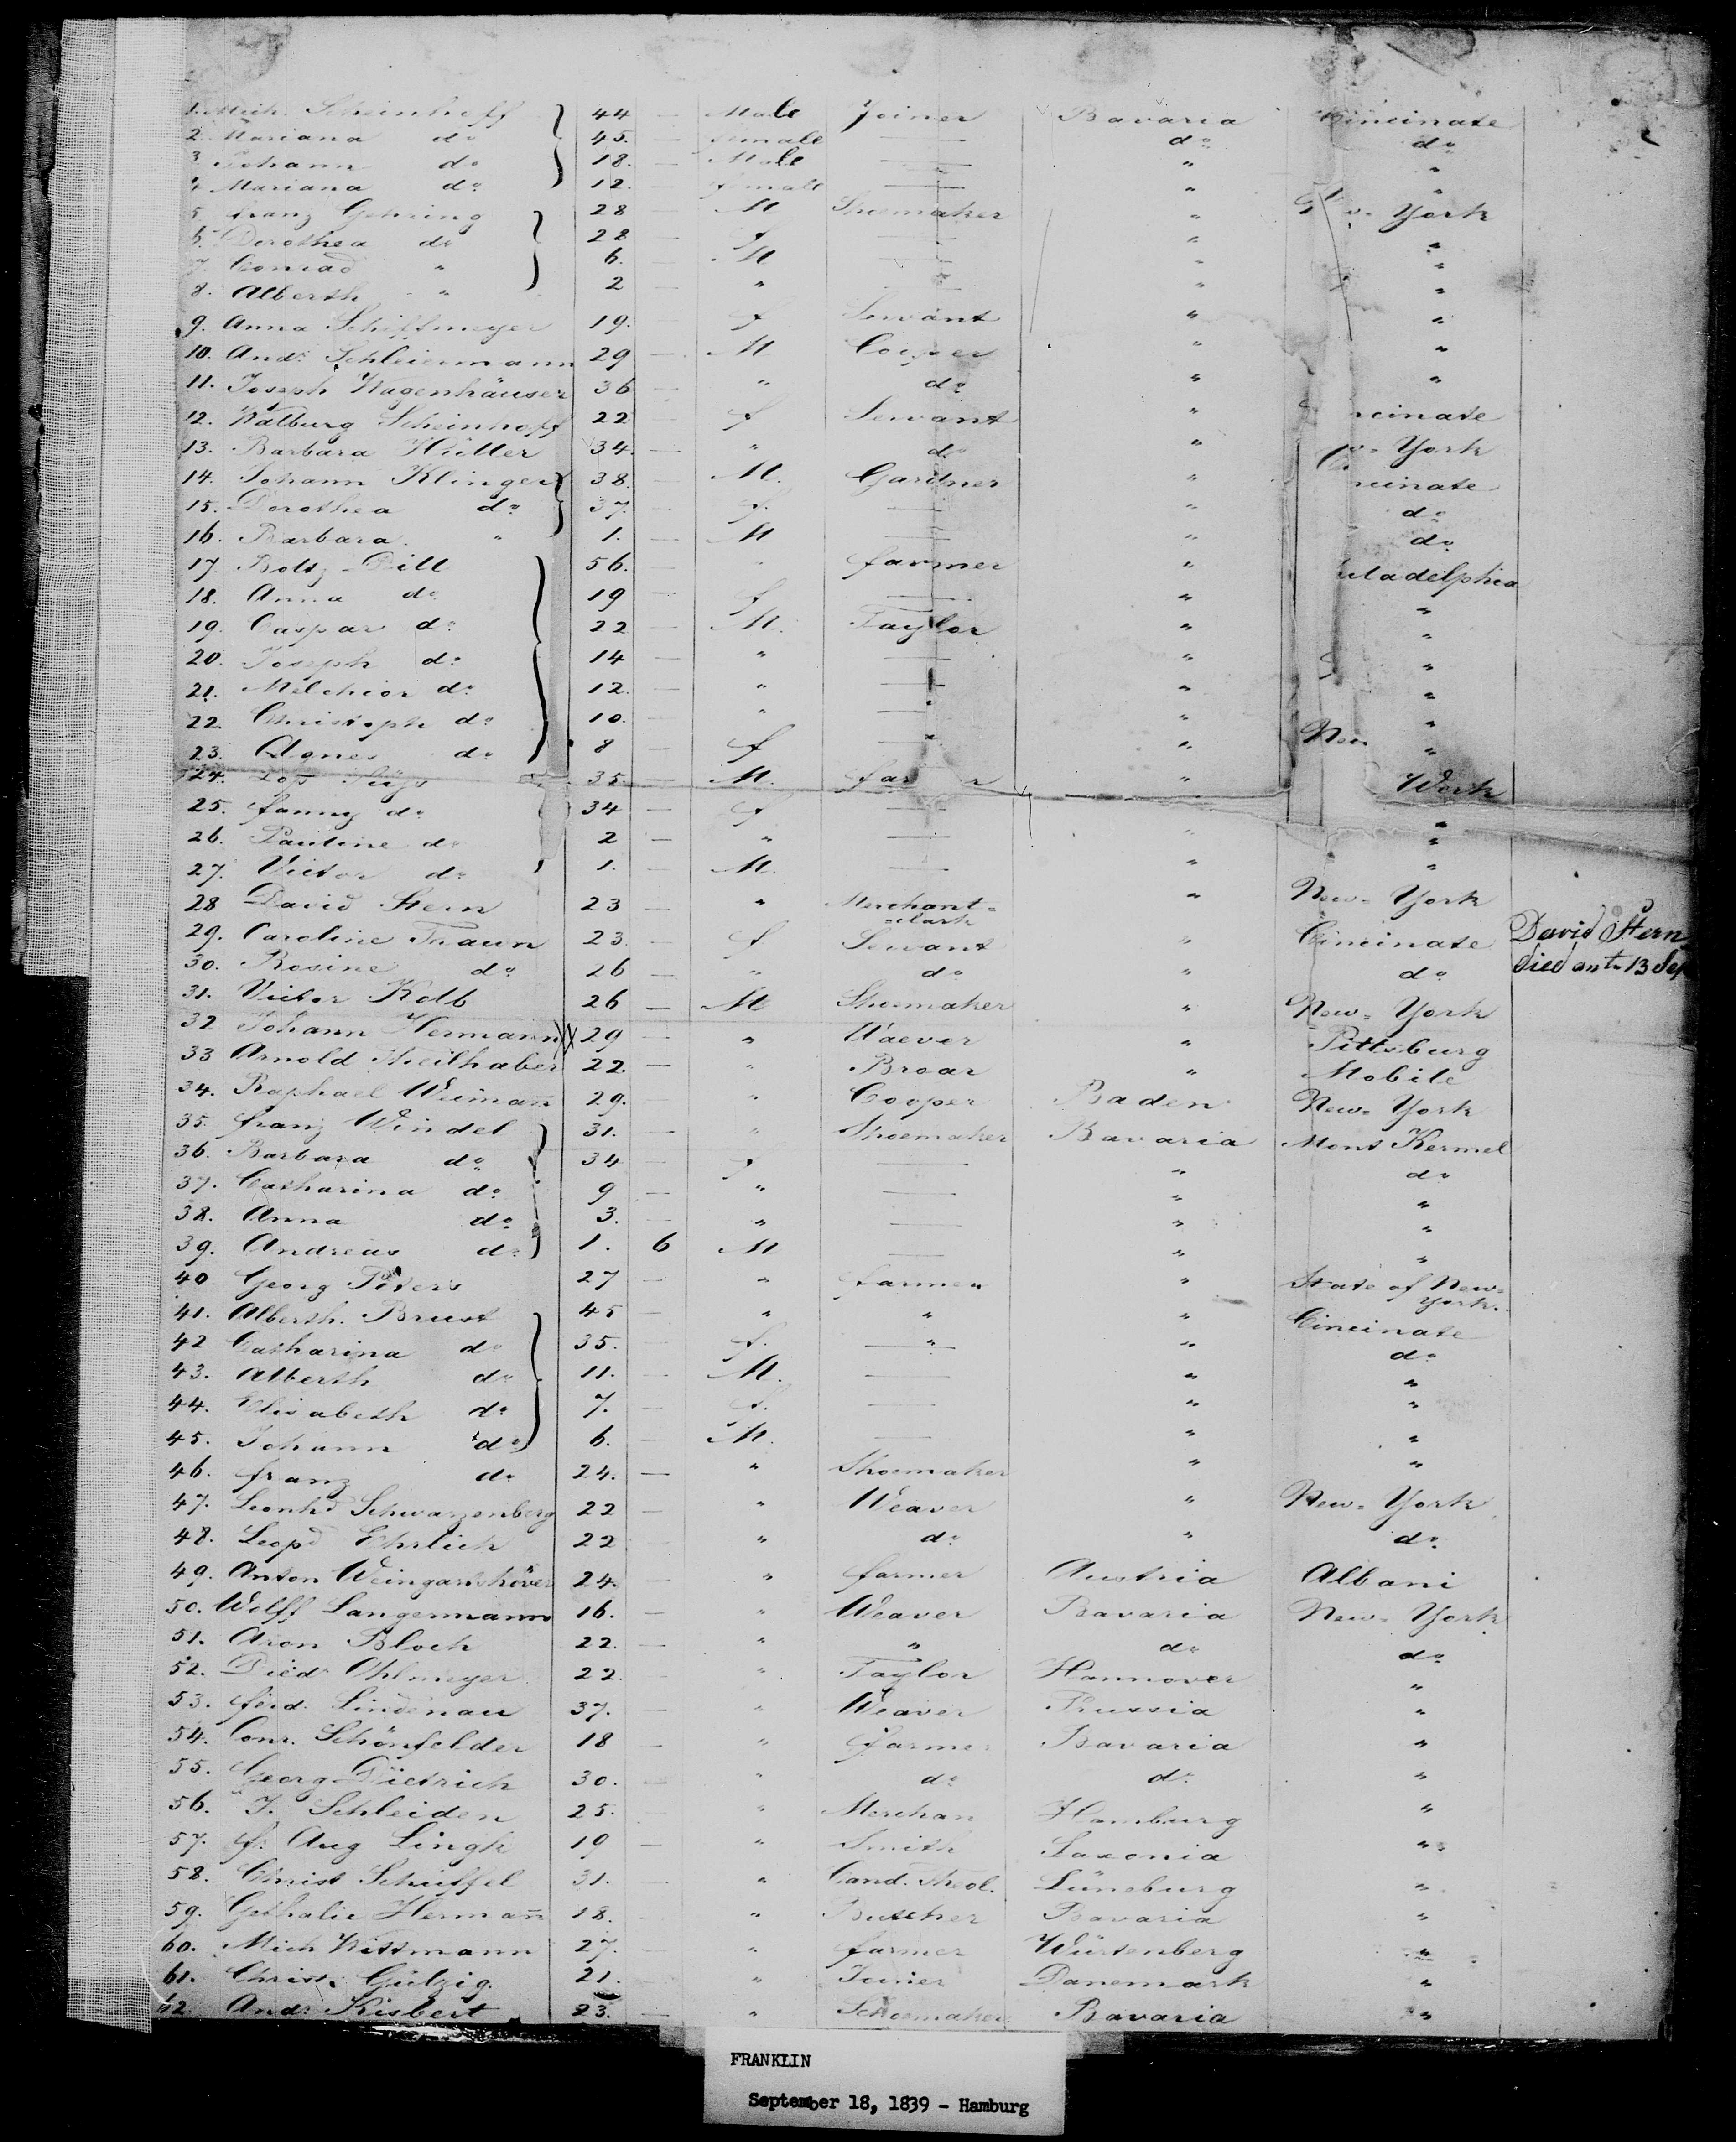 1. Mich. Scheinhoff } 44 — Male Joiner Bavaria Cincinate
2. Mariana do 45. — female — do do
3. Johann do 18. — Male — " "
4. Mariana do 12. — female — " "
5. franz Gehring } 28 — M Shoemaker " York
6. Dorothea do 28 — f — " "
7. Conrad " 6. — M — " "
8. Alberth " 2 " — " "
9. Anna Schiffmeyer 19. f Servant " "
10. Andr Schleiermann 29 — M Cooper " "
11. Joseph Wagenhäuser 36 " do " "
12. Walburg Scheinhoff 22 f Servant " cinate
13. Barbara Hüller 34. " do " York
14. Johann Klinger } 38. M. Gardner " cinate
15. Dorothea do 37. f. — " do
16. Barbara " 1. — M — " do
17. Boltz Dill } 56. — " farmer " iladelphia
18. Anna do 19 — f — " "
19. Caspar do 22 — M. Taylor " "
20. Joseph do 14 — " — " "
21. Melchior do 12. — " — " "
22. Christoph do 10. — " — " "
23. Agnes do 8 — f — " New "
24. 35. — M. far r " Work
25. fanny do 34 — f — "
26. Pauline do 2 — " — " "
27. Victor do 1. — M. — " "
28 David Stern 23 — " Merchant= " New= York
clark
29. Caroline Traun 23. f Servant " Cincinate David Stern
30. Rosine do 26 — " do " do died on th 13 Sep
31. Victor Kolb 26 — M Shoemaker " New= York
32 Johann Hermann 29 — " Waever " Pittsburg
33 Arnold Theilhaber 22 — " Broar " Mobile
34. Raphael Weiman̄ 29. — " Cooper Baden New= York
35. franz Windel } 31. — " Shoemaker Bavaria Mont Kermel
36. Barbara do 34 — f — " do
37. Catharina do 9 — " — " "
38. Anna do 3. — " — " "
39. Andreas do 1. 6 M — " "
40. Georg Peters 27 — " farmer " State of New=
York.
41. Alberth. Brust } 45 — " " " Cincinate
42 Catharina do 35. — f. " " do
43. Alberth do 11. — M. — " "
44. Elisabeth do 7. — f. — " "
45. Johann do 6. — M. — " "
46. franz do 24. — " Shoemaker " "
47. Leonhd Schwarzenberg 22 — " Weaver " New= York
48. Leopd Ehrlich 22 — " do " do
49. Anton Weingartshöver 24. — " farmer Austria Albani
50. Wolff Langermann 16. — " Weaver Bavaria New= York
51. Aron Bloch 22. — " " do do
52. Diedr Ohlmeyer 22. " Taylor Hannover "
53. ferd. Lindenau 37. — " Weaver Prussia "
54. Conr. Schönfelder 18 — " farmer Bavaria "
55. Georg Dietrich 30. — " do do "
56. J. Schleiden 25. " Merchan Hamburg "
57. f. Aug Lingk 19 — " Smith Saxonia "
58. Christ Schüffel 31. " Cand. Theol. Lüneburg "
59. Hermann 18. " Butcher Bavaria "
60. Mich Wittmann 27. — " farmer Würtenberg "
61. Christ. Gülzig 21. " Joiner Danemark "
62. Andr Kisbert 23. — " Schoemaker Bavaria "
FRANKLIN
September 18, 1839 - Hamburg